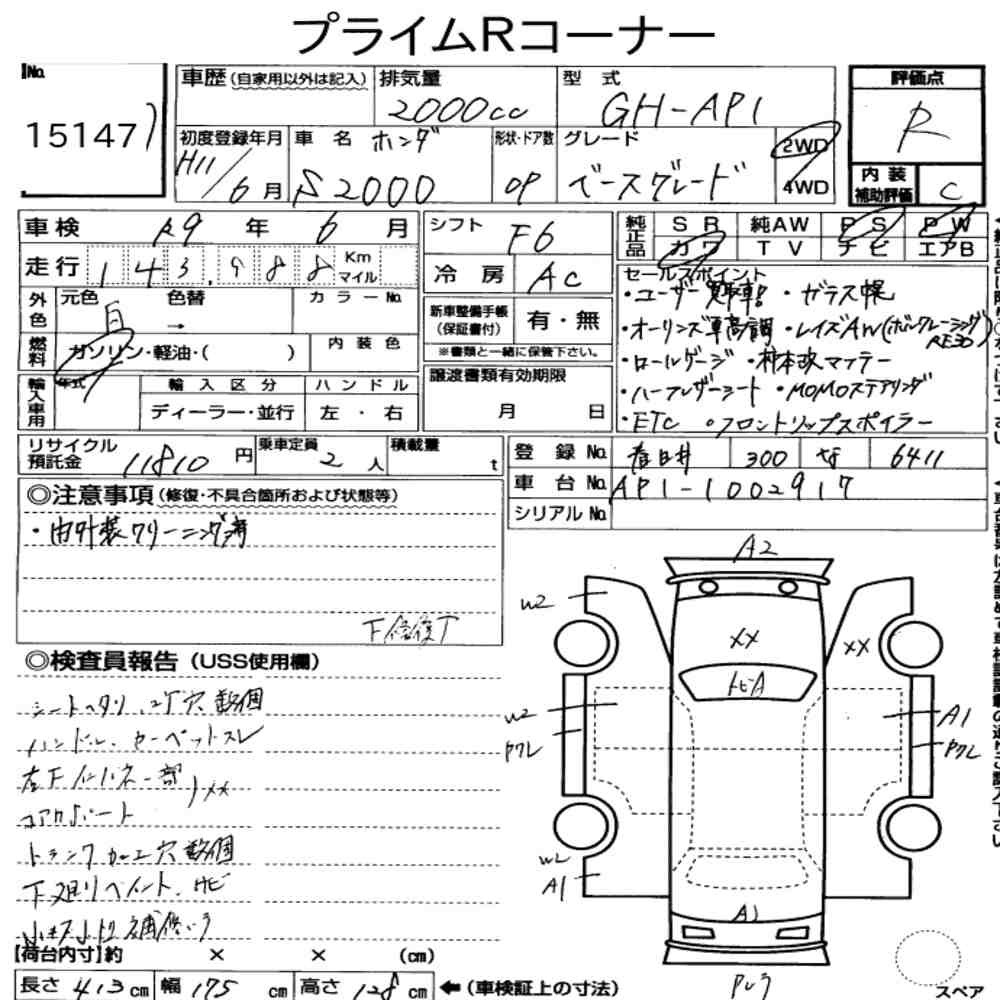 プライムRコーナー
No.
15147
車歴(自家用以外は記入) 排気量 2000cc 型式 GH-AP1
評価点 R
初度登録年月 H11/6月 車名 ホンダ S2000 形状・ドア数 OP グレード ベースグレード 2WD 4WD
内装補助評価 C
車検 R9年 6月 シフト F6
純正品 SR 純AW PS PW
カワ TV ナビ エアB
走行 143,988 Km マイル 冷房 AC
外色 元色 白 色替 → カラーNo.
新車整備手帳(保証書付) 有・無
※書類と一緒に保管下さい。
燃料 ガソリン・軽油・( ) 内装色
輸入車用 年式 輸入区分 ハンドル
ディーラー・並行 左・右
譲渡書類有効期限
月 日
セールスポイント
・ユーザー買取車! ・ガラス幌
・オーリンズ車高調 ・レイズAW(ボルクレーシング RE30)
・ロールゲージ ・柿本改マフラー
・ハーフレザーシート ・MOMOステアリング
・ETC ・フロントリップスポイラー
リサイクル預託金 11810円 乗車定員 2人 積載量 t
登録No. 春日井 300 な 6411
車台No. AP1-1002917
シリアルNo.
◎注意事項(修復・不具合箇所および状態等)
・内外装クリーニング済
下修復丁
◎検査員報告(USS使用欄)
シートヘタリ、コゲ穴数個
ハンドル、カーペットスレ
左下インパネ一部
XX
コアサポート
トランク加工穴数個
下廻りペイント、サビ
【荷台内寸】約 × × (cm)
長さ 413cm 幅 175cm 高さ 128cm ←(車検証上の寸法)
A2
W2
XX
XX
トビA
W2
A1
A1
A1
スペア